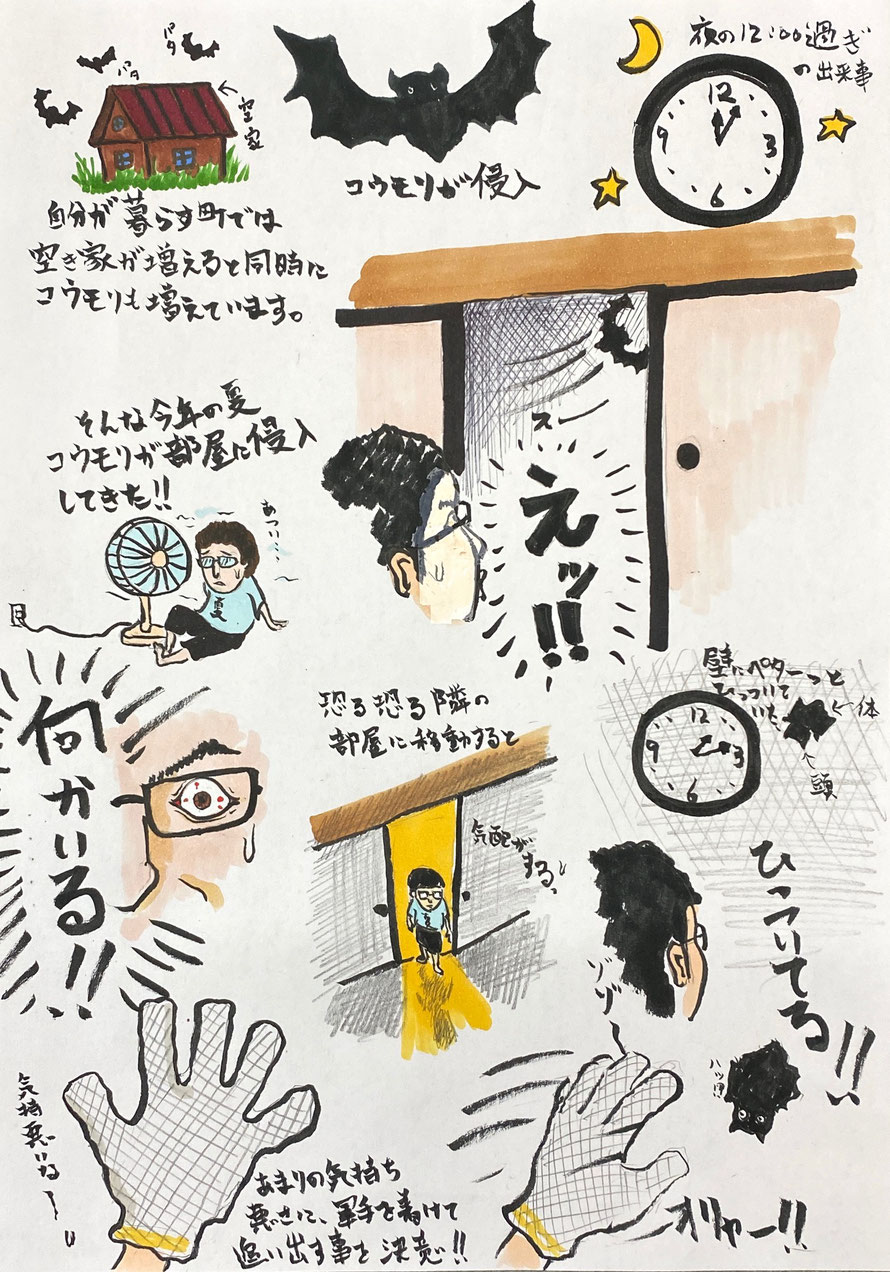 パタ
パタ
←空家
自分が暮らす町では
空き家が増えると同時に
コウモリも増えています。
コウモリが侵入
夜の12:00過ぎ
の出来事
12
9
3
6
そんな今年の夏
コウモリが部屋に侵入
してきた!!
あつい…
夏
スー
えッ!!
何かいる!!
恐る恐る隣の
部屋に移動すると
気配が
する。
壁にペターっと
ひっついて
いた
←体
↑頭
12
9
3
6
ゾゾ〜
ひっついてる!!
気持悪いな〜。
あまりの気持ち
悪さに、軍手を着けて
追い出す事を決意!!
ハッ!!
オリャー!!